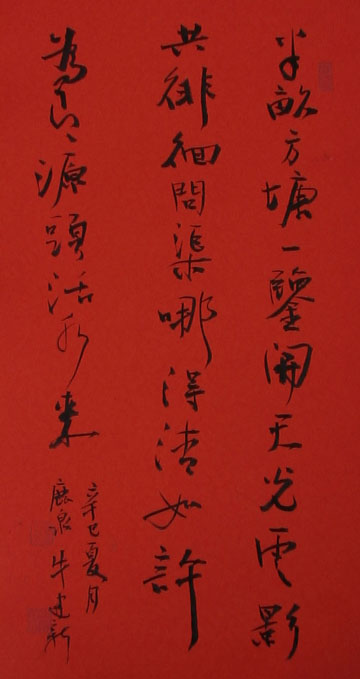 半畝方塘一鑒開天光雲影
共徘徊問渠哪得清如許
為有源頭活水來
辛巳夏月
鹿泉牛建新